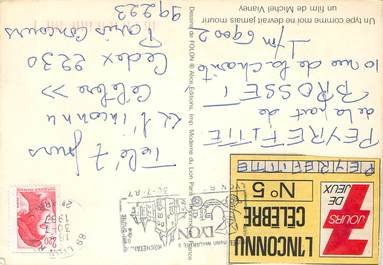 Un type comme moi ne devrait jamais mourir
un film de Michel Vianey
Dessins de FOLON © Alice Editions, Imp. Moderne du Lion Paris
Télé 7 jours
« L'inconnu
Célèbre »
Cedex 2230
Paris Concours
99223
PEYREFITTE
de la part de
BROSSE
10 rue de la Charité
69002
7
JOURS
DE
JEUX
L'INCONNU
CÉLÈBRE
N° 5
PEYREFITTE
LYON